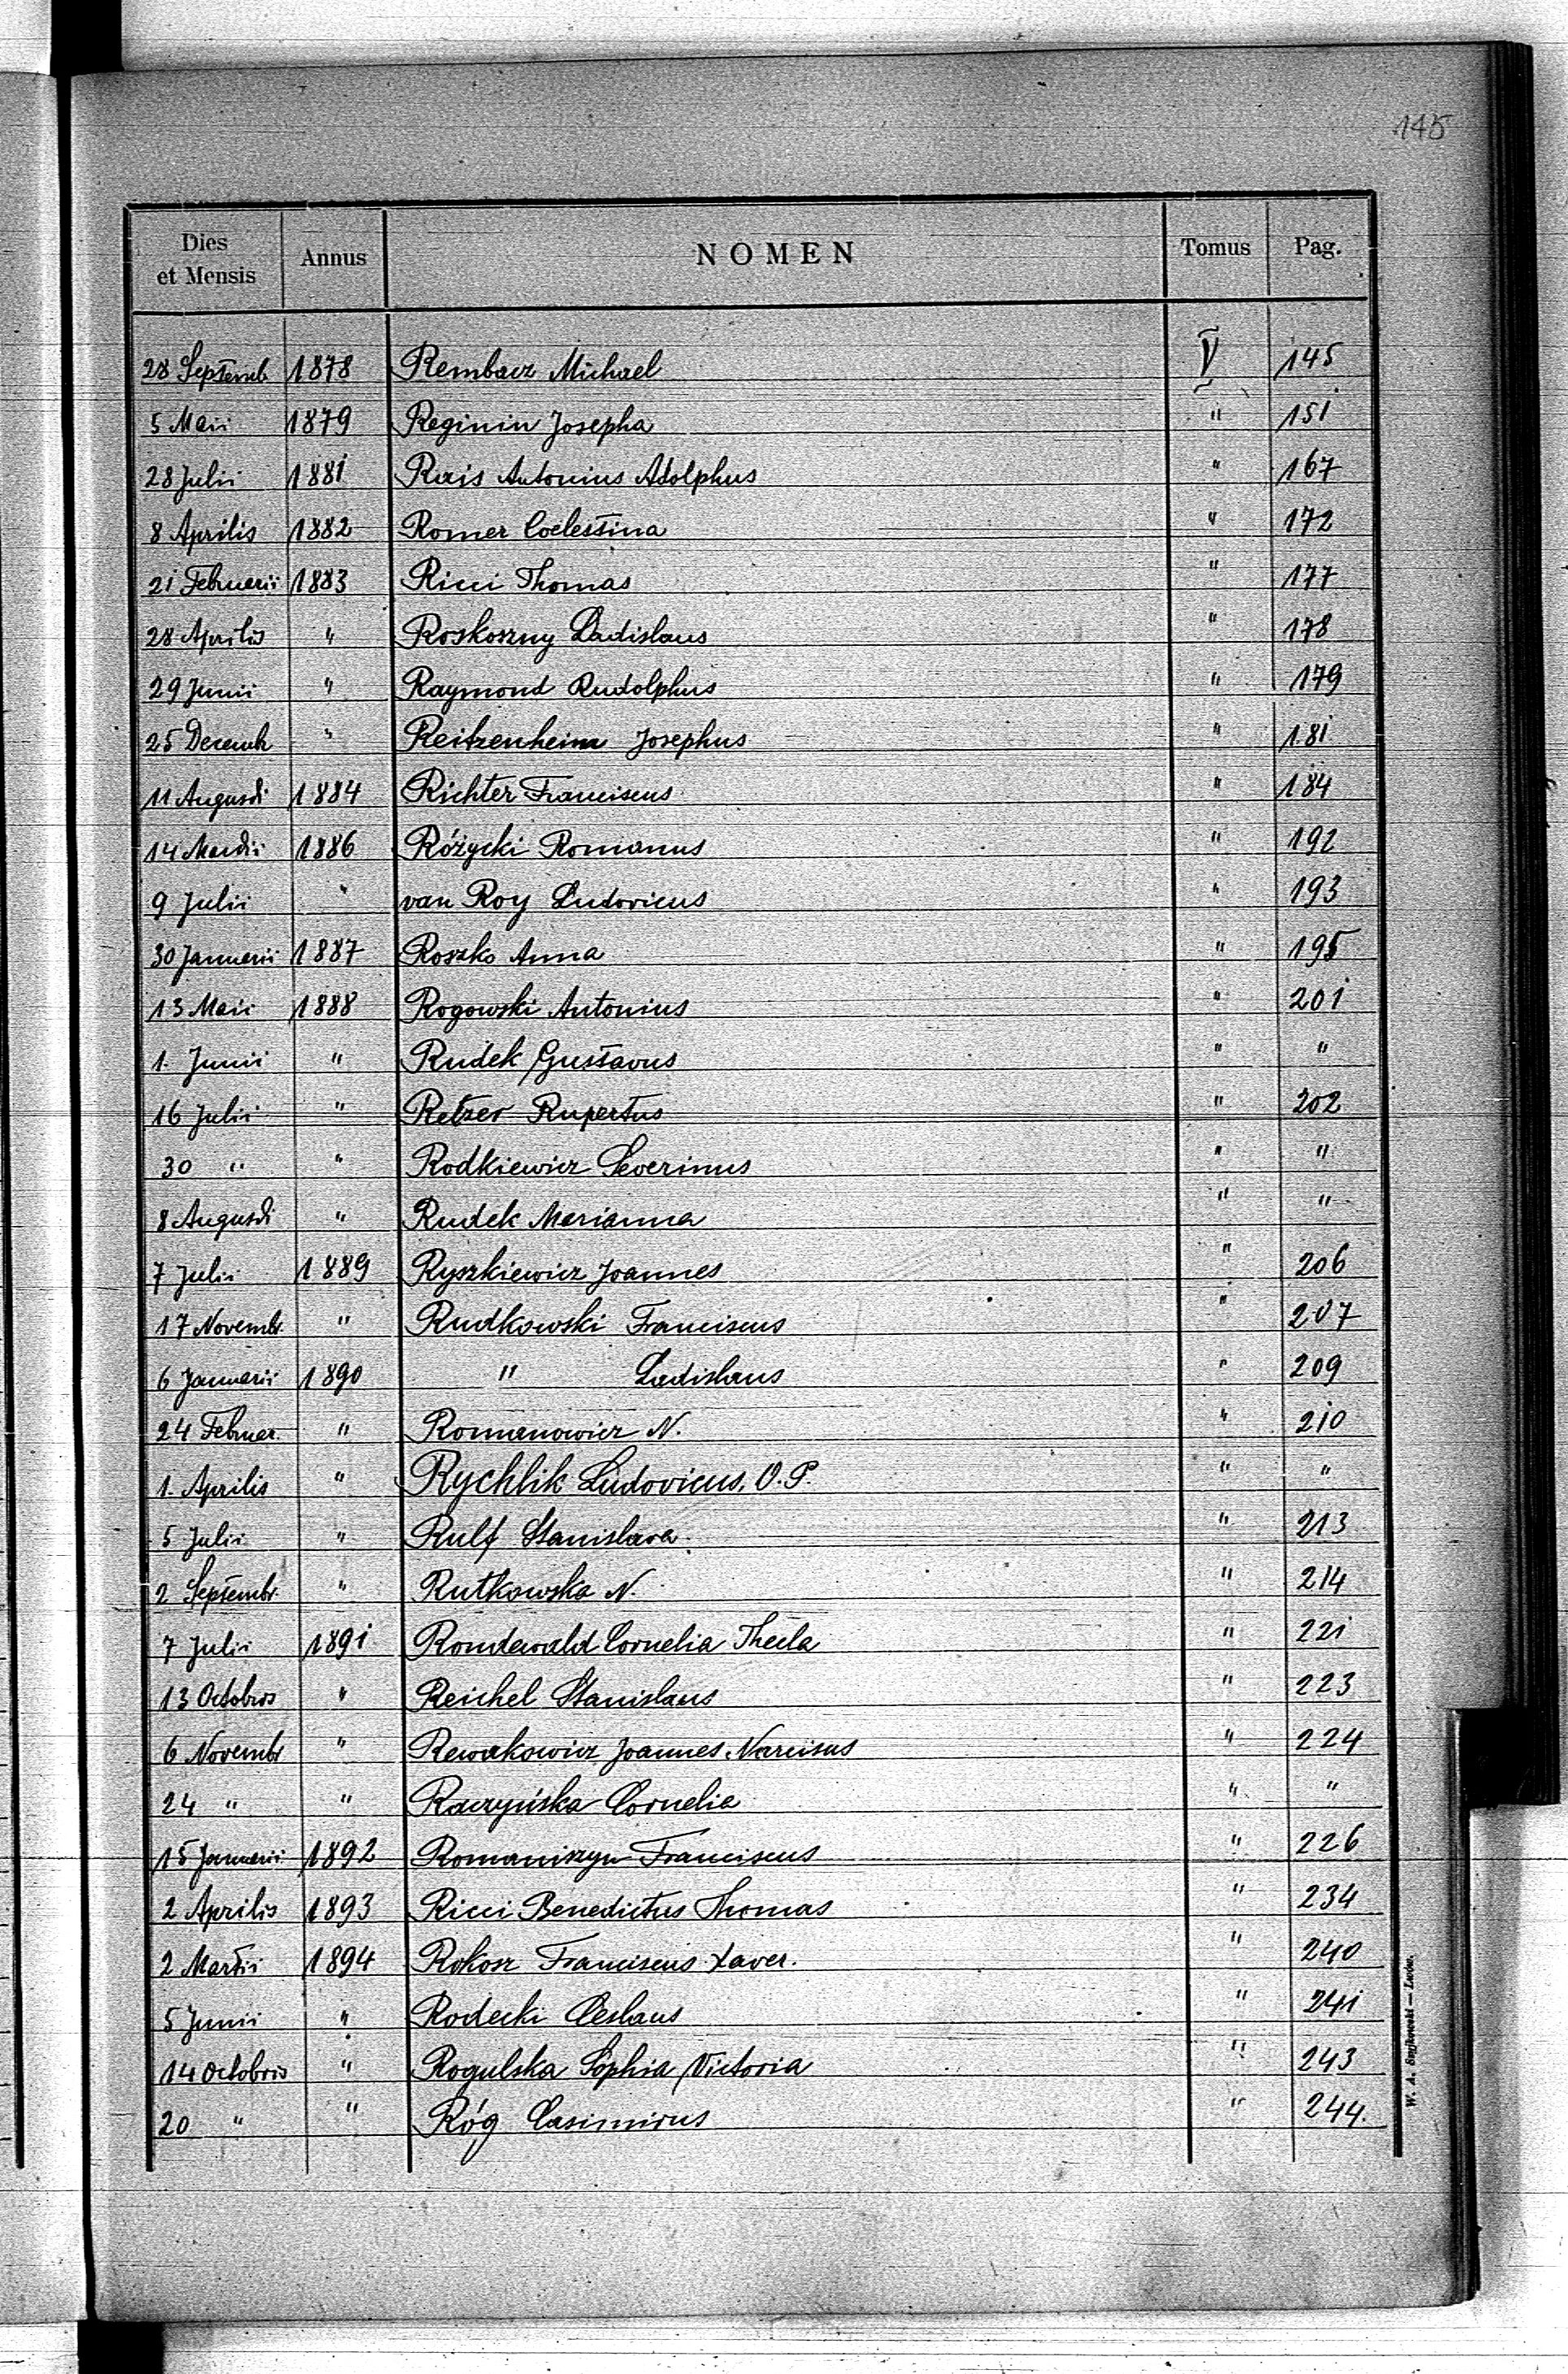 145
Dies et Mensis Annus NOMEN Tomus Pag.
28 Septemb. 1878 Rembacz Michael V 145
5 Maii 1879 Reginin Josepha " 151
28 Julii 1881 Rais Antonius Adolphus " 167
8 Aprilis 1882 Romer Coelestina " 172
21 Februarii 1883 Ricci Thomas " 177
28 Aprilis " Roskoszny Ladislaus " 178
29 Junii " Raymond Rudolphus " 179
25 Decemb " Reitzenheim Josephus " 181
11 Augusti 1884 Richter Franciscus " 184
14 Martii 1886 Różycki Romanus " 192
9 Julii " van Roy Ludovicus " 193
30 Januarii 1887 Roszko Anna " 195
13 Maii 1888 Rogowski Antonius " 201
1. Junii " Rudek Gustavus " "
16 Julii " Retzer Rupertus " 202
30 " " Rodkiewicz Severinus " "
8 Augusti " Rudek Marianna " "
7 Julii 1889 Ryszkiewicz Joannes " 206
17 Novembr. " Rudkowski Franciscus " 207
6 Januarii 1890 " Ladislaus " 209
24 Februar. " Romanowicz N. " 210
1. Aprilis " Rychlik Ludovicus, O.P. " "
5 Julii " Rulf Stanislava " 213
2 Septembr. " Rutkowska N. " 214
7 Julii 1891 Romdewald Cornelia Thecla " 221
13 Octobris " Reichel Stanislaus " 223
6 Novembr " Rewakowicz Joannes Narcisus " 224
24 " " Raczyńska Cornelia " "
15 Januarii 1892 Romaniszyn Franciscus " 226
2 Aprilis 1893 Ricci Benedictus Thomas " 234
2 Martii 1894 Rokosz Franciscus Xaver. " 240
5 Junii " Rodecki Ceslaus " 241
14 Octobris " Rogulska Sophia Victoria " 243
20 " " Róg Casimirus " 244.
W. A. Szyjkowski — Lwów.